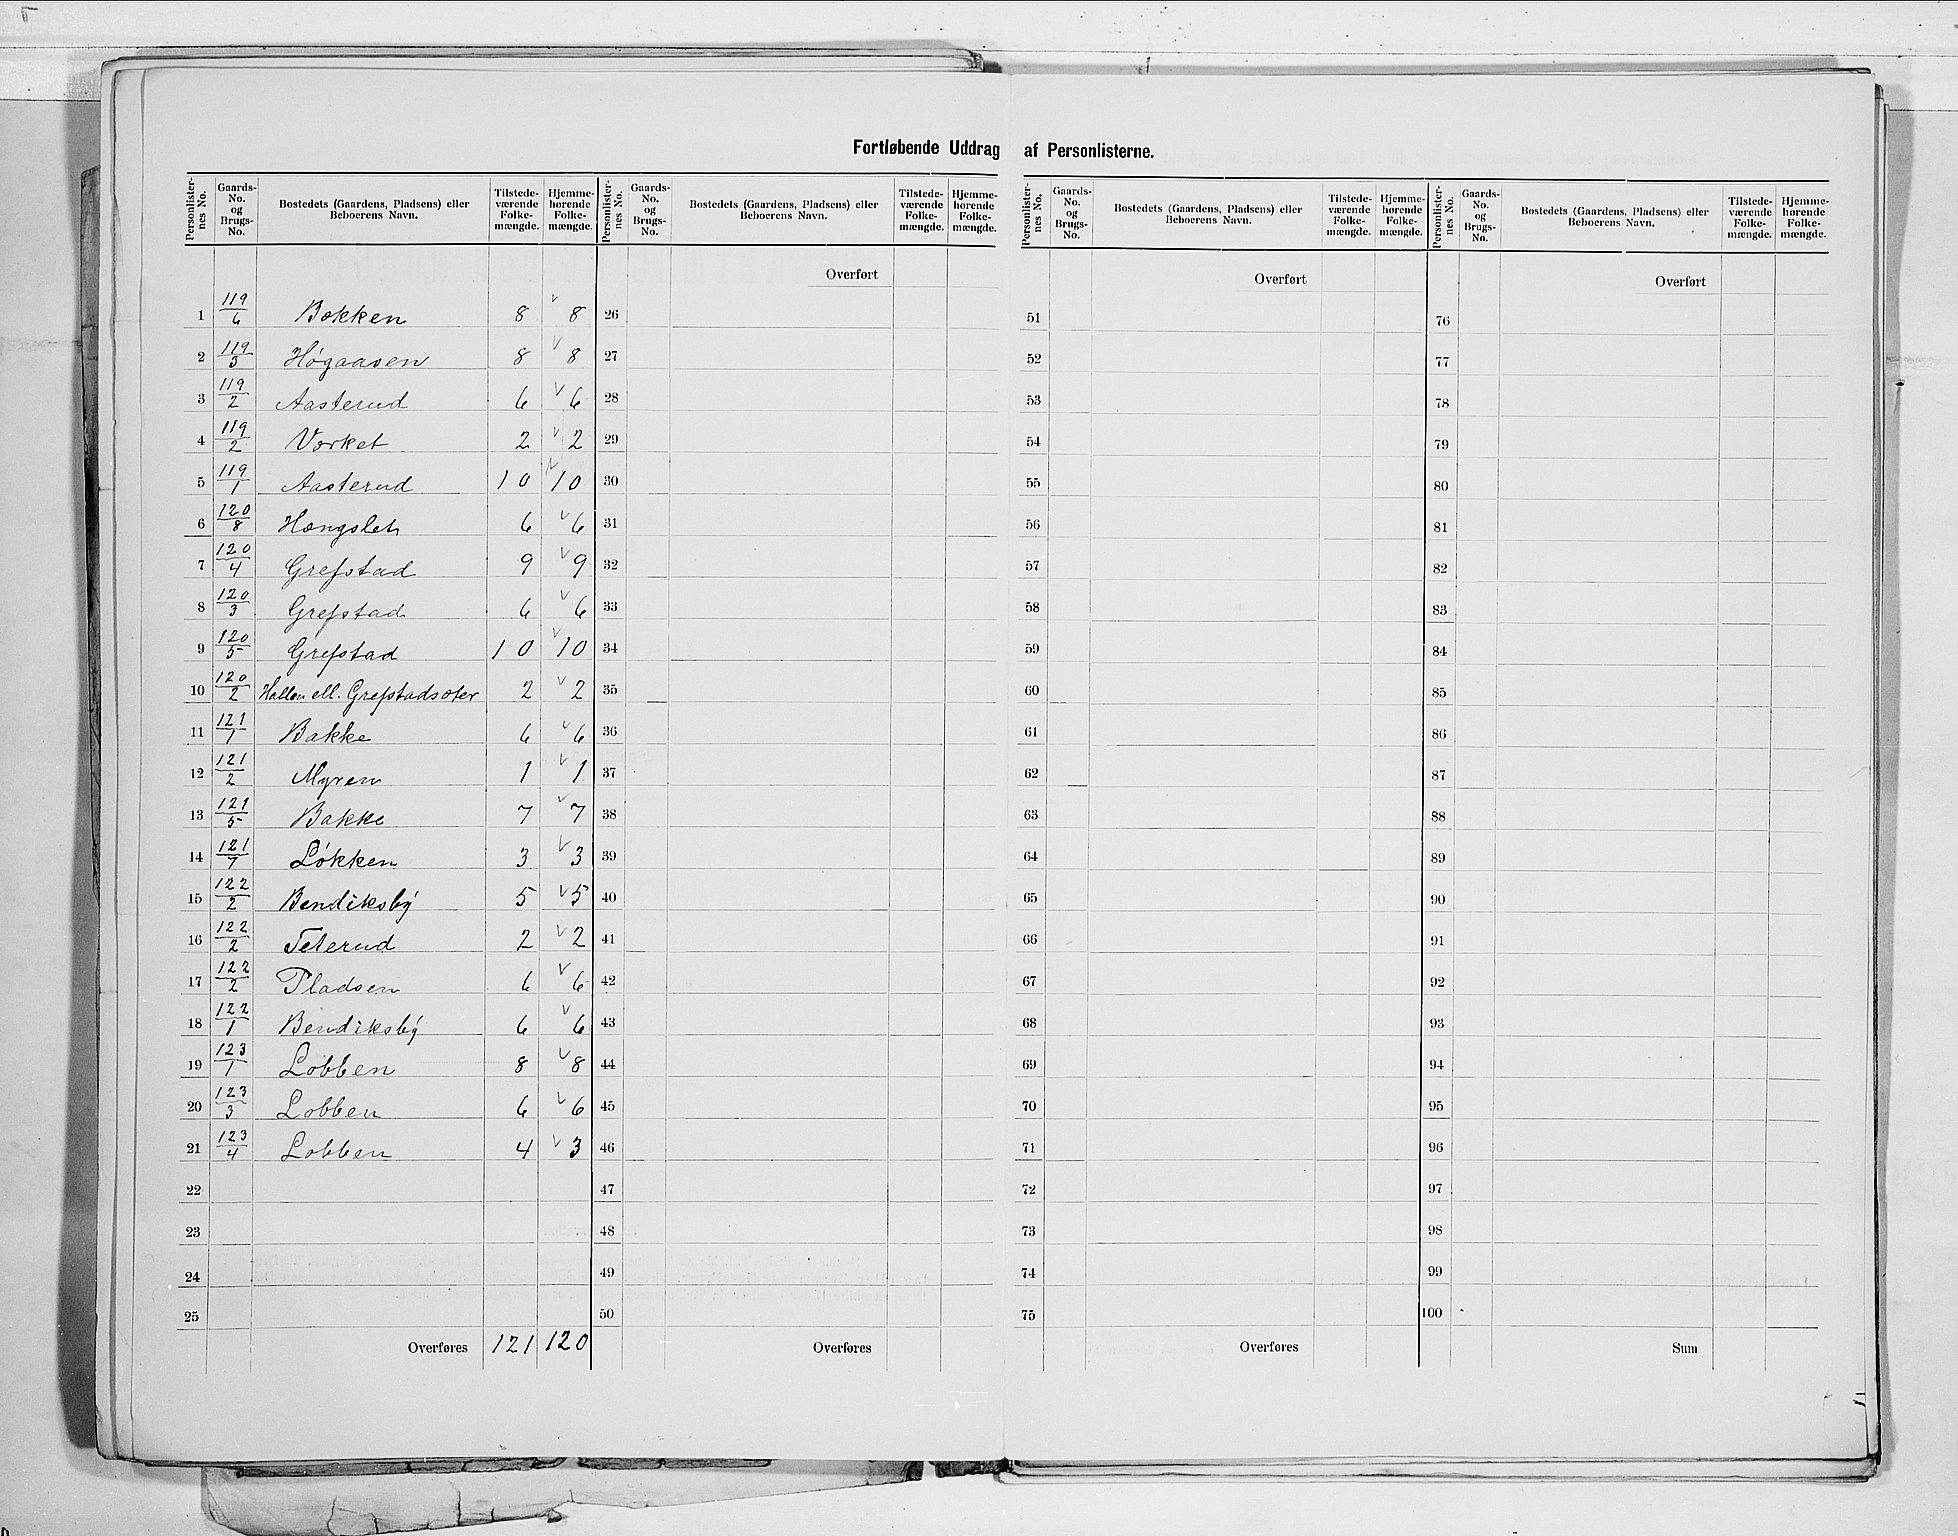 Fortløbende Uddrag af Personlisterne.
Personlister-nes No. Gaards-No. og Brugs-No. Bostedets (Gaardens, Pladsens) eller Beboerens Navn. Tilstede-værende Folke-mængde. Hjemme-hørende Folke-mængde. Personlister-nes No. Gaards-No. og Brugs-No. Bostedets (Gaardens, Pladsens) eller Beboerens Navn. Tilstede-værende Folke-mængde. Hjemme-hørende Folke-mængde. Personlister-nes No. Gaards-No. og Brugs-No. Bostedets (Gaardens, Pladsens) eller Beboerens Navn. Tilstede-værende Folke-mængde. Hjemme-hørende Folke-mængde. Personlister-nes No. Gaards-No. og Brugs-No. Bostedets (Gaardens, Pladsens) eller Beboerens Navn. Tilstede-værende Folke-mængde. Hjemme-hørende Folke-mængde.
Overført Overført Overført
1 119/6 Bakken 8 v 8 26 51 76
2 119/3 Høgaasen 8 v 8 27 52 77
3 119/2 Aasterud 6 v 6 28 53 78
4 119/2 Værket 2 v 2 29 54 79
5 119/1 Aasterud 10 v 10 30 55 80
6 120/8 Hængslet 6 v 6 31 56 81
7 120/4 Grefstad 9 v 9 32 57 82
8 120/3 Grefstad 6 v 6 33 58 83
9 120/5 Grefstad 10 v 10 34 59 84
10 120/2 Hallen ell. Grefstadsæter 2 v 2 35 60 85
11 121/1 Bakke 6 v 6 36 61 86
12 121/2 Myren 1 v 1 37 62 87
13 121/5 Bakke 7 v 7 38 63 88
14 121/7 Løkken 3 v 3 39 64 89
15 122/2 Bendiksby 5 v 5 40 65 90
16 122/2 Teterud 2 v 2 41 66 91
17 122/2 Pladsen 6 v 6 42 67 92
18 122/1 Bendiksby 6 v 6 43 68 93
19 123/1 Lobben 8 v 8 44 69 94
20 123/3 Lobben 6 v 6 45 70 95
21 123/4 Lobben 4 v 3 46 71 96
22 47 72 97
23 48 73 98
24 49 74 99
25 50 75 100
Overføres 121 120 Overføres Overføres Sum